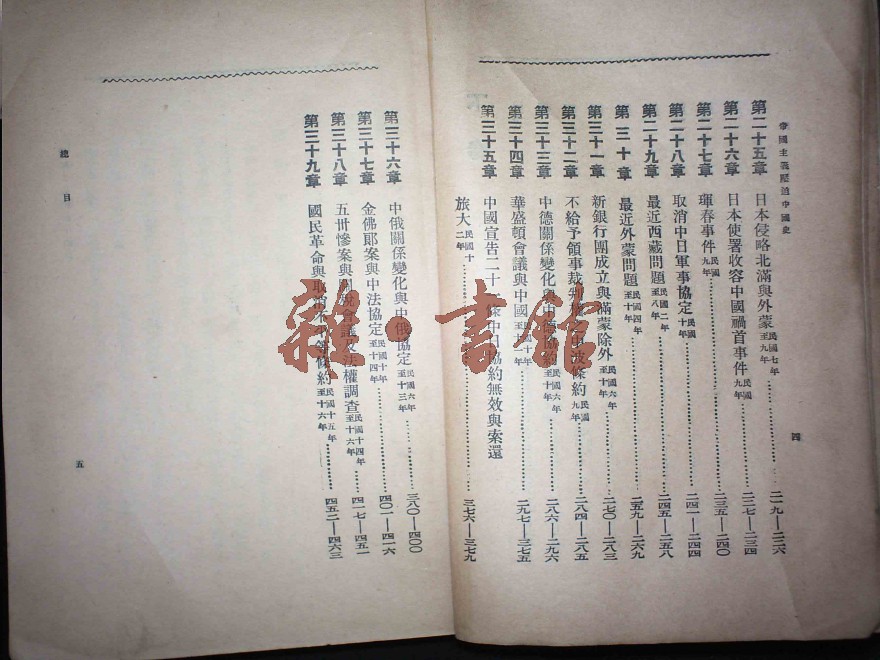 帝國主義壓迫中國史
第二十五章 日本侵略北滿與外蒙民國七年至九年……二一九—二二六
第二十六章 日本使署收容中國禍首事件民國九年……二二七—二三四
第二十七章 琿春事件民國九年……二三五—二四〇
第二十八章 取消中日軍事協定民國十年……二四一—二四四
第二十九章 最近西藏問題民國二年至八年……二四五—二五八
第三十章 最近外蒙問題民國四年至十年……二五九—二六九
第三十一章 新銀行團成立與滿蒙除外民國六年至十年……二七〇—二八三
第三十二章 不給予領事裁判權 中波條約民國九年……二八四—二八五
第三十三章 中德關係變化與中德協約民國六年至十年……二八六—二九六
第三十四章 華盛頓會議與中國民國十年至十一年……二九七—三七五
第三十五章 中國宣告二十一條中日協約無效與索還
旅大民國十二年……三七六—三七九
四
第三十六章 中俄關係變化與中俄協定民國六年至十三年……三八〇—四〇〇
第三十七章 金佛郎案與中法協定民國十年至十四年……四〇一—四一六
第三十八章 五卅慘案與關稅會議及法權調查民國十四年至十六年……四一七—四五一
第三十九章 國民革命與取消不平等條約民國十五年至十六年……四五二—四六三
總目
五
雜·書館